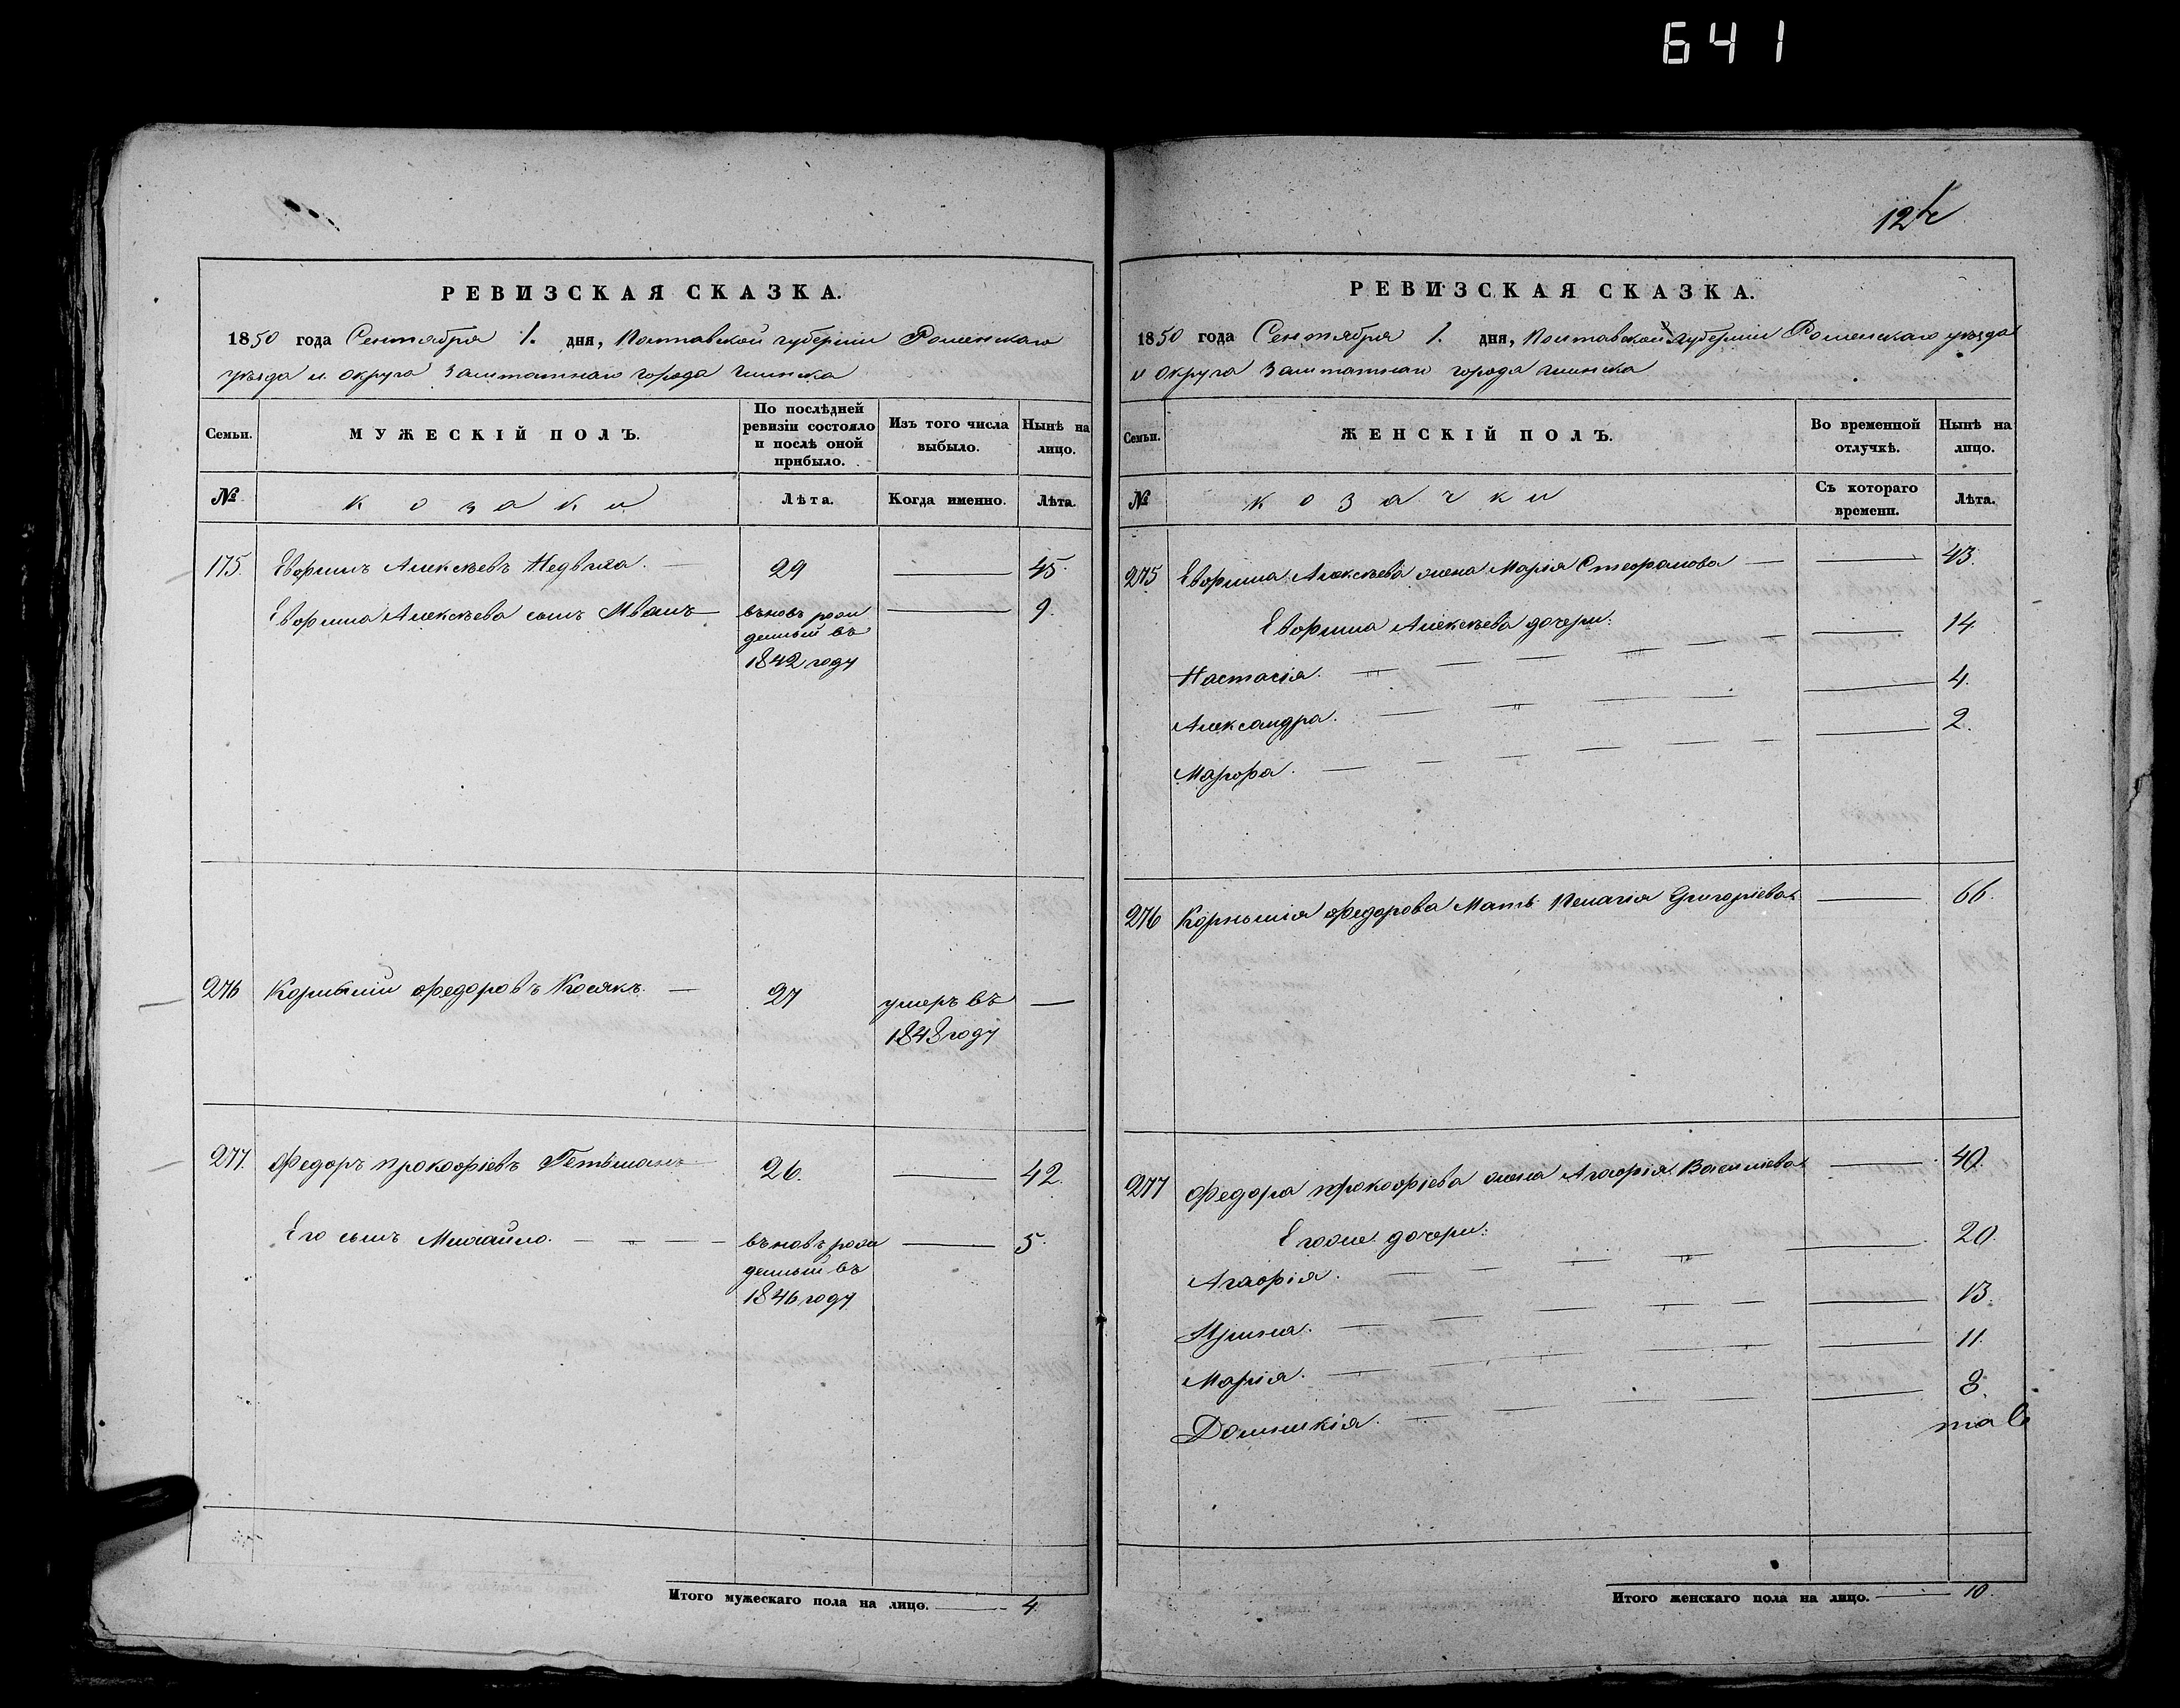 641
РЕВИЗСКАЯ СКАЗКА.
1850 года Сентября 1. дня, Полтавской губерніи Роменскаго
уѣзда и округа Заштатнаго города Глинска
Семьи.
МУЖЕСКІЙ ПОЛЪ.
По послѣдней
ревизіи состояло
и послѣ оной
прибыло.
Изъ того числа
выбыло.
Нынѣ на
лицо.
№
козаки
Лѣта.
Когда именно.
Лѣта.
175. Алексѣевъ — 29 — 45.
Алексѣева сынъ Иванъ — вновь рож — 9.
денный въ
1842 году
276 Корнилій Федоровъ Косякъ. — 27 умеръ въ —
1848 году
277. Федоръ Прокофіевъ Гетьманъ 26. — 42.
Его сынъ Михайло. — " — — вновь рож — 5.
денный въ
1846 году
Итого мужескаго пола на лицо. — 4.
124
РЕВИЗСКАЯ СКАЗКА.
1850 года Сентября 1. дня, Полтавской Губерніи Роменскаго уѣзда
и округа Заштатнаго города Глинска
Семьи.
ЖЕНСКІЙ ПОЛЪ.
Во временной
отлучкѣ.
Нынѣ на
лицо.
№
козачки
Съ котораго
времени.
Лѣта.
275 Алексѣева жена Марія Стефанова — — 43.
Алексѣева дочери:
Настасія. — " — — — — 14
Александра. — — " — — 4.
Марфа. — — — — — 2.
276 Корнилія Федорова Мать Пелагія Григоріева — 66.
277 Федора Прокофіева жена Агафія Васильева — 40.
Его же дочери:
Агафія. — — — " — 20.
Ирина. — — — — 13.
Марія. — — — — 11.
Домникія. — — — — 8.
Итого женскаго пола на лицо. — 10.